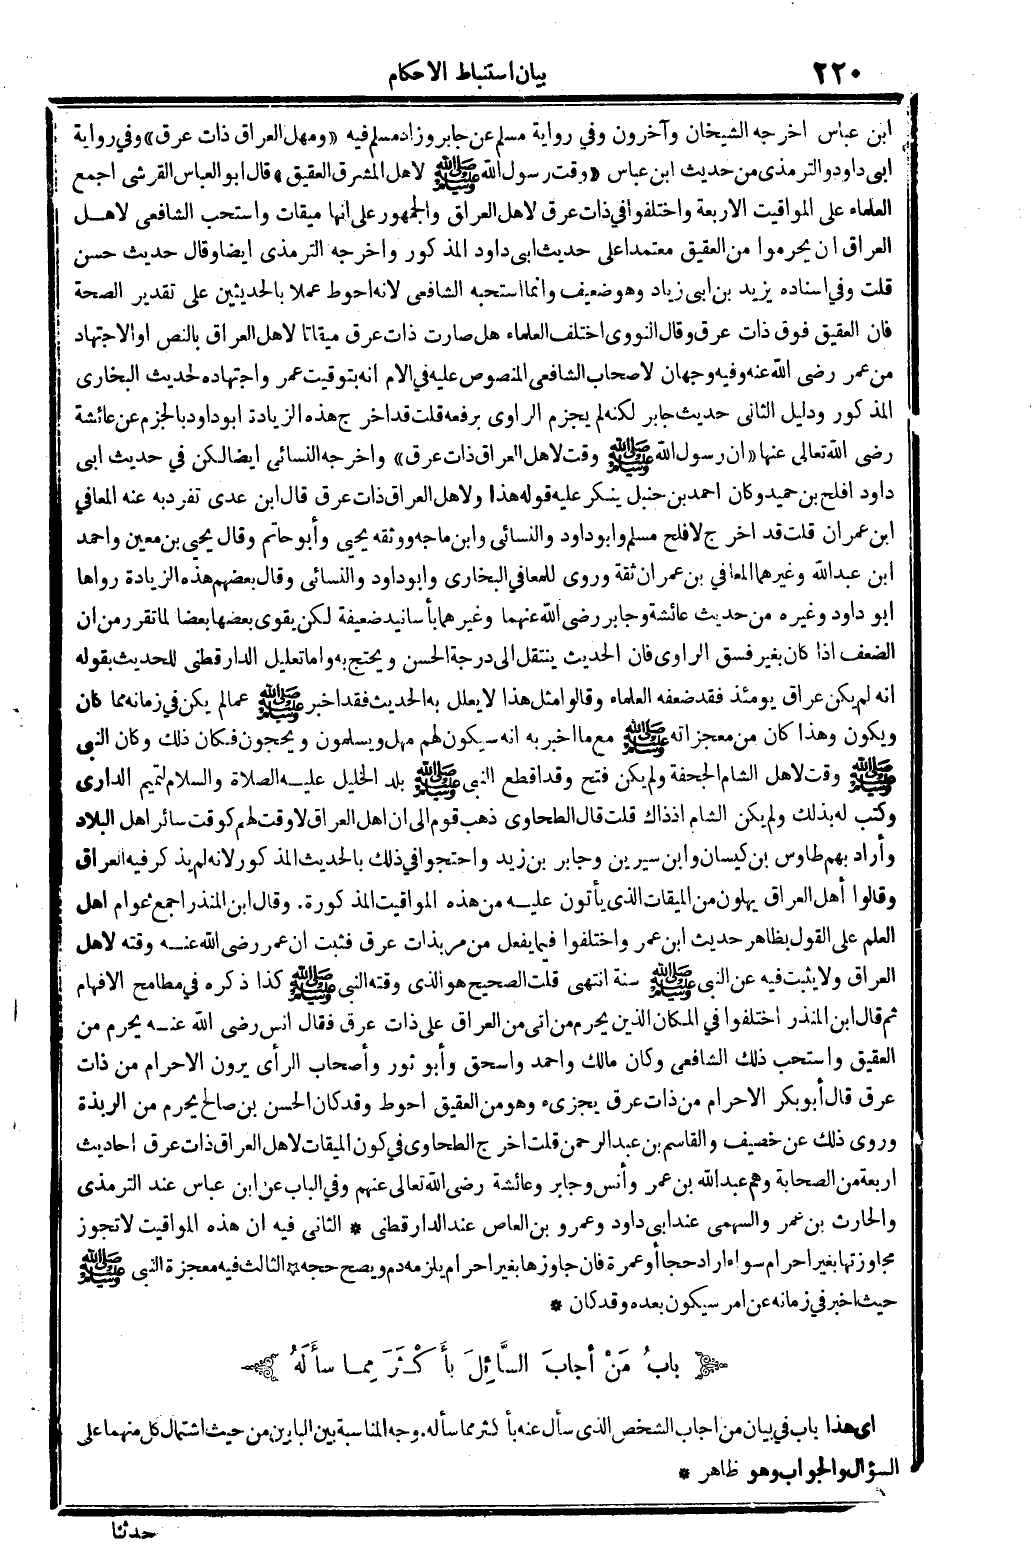 ٢٢٠
بيان استنباط الاحكام
ابن عباس اخرجه الشيخان وآخرون وفي رواية مسلم عن جابر وزاد مسلم فيه «ومهل العراق ذات عرق» وفي رواية
ابى داود والترمذى من حديث ابن عباس «وقت رسول الله ﷺ لاهل المشرق العقيق» قال ابو العباس القرشى اجمع
العلماء على المواقيت الاربعة واختلفوا في ذات عرق لاهل العراق والجمهور على انها ميقات واستحب الشافعى لاهل
العراق ان يحرموا من العقيق معتمدا على حديث ابى داود المذكور واخرجه الترمذى ايضا وقال حديث حسن
قلت وفي اسناده يزيد بن ابى زياد وهو ضعيف وانما استحبه الشافعى لانه احوط عملا بالحديثين على تقدير الصحة
فان العقيق فوق ذات عرق وقال النووى اختلف العلماء هل صارت ذات عرق ميقاتا لاهل العراق بالنص او الاجتهاد
من عمر رضى الله عنه وفيه وجهان لاصحاب الشافعى المنصوص عليه في الام انه بتوقيت عمر واجتهاده لحديث البخارى
المذكور ودليل الثانى حديث جابر لكنه لم يجزم الراوى برفعه قلت قد اخرج هذه الزيادة ابو داود بالجزم عن عائشة
رضى الله تعالى عنها «ان رسول الله ﷺ وقت لاهل العراق ذات عرق» واخرجه النسائى ايضا لكن في حديث ابى
داود افلح بن حميد وكان احمد بن حنبل ينكر عليه قوله هذا ولاهل العراق ذات عرق قال ابن عدى تفرد به عنه المعافي
ابن عمران قلت قد اخرج لافلح مسلم وابو داود والنسائى وابن ماجه ووثقه يحيى وأبو حاتم وقال يحيى بن معين واحمد
ابن عبد الله وغيرهما المعافي بن عمران ثقة وروى للمعافي البخارى وابو داود والنسائى وقال بعضهم هذه الزيادة رواها
ابو داود وغيره من حديث عائشة وجابر رضى الله عنهما وغيرهما بأسانيد ضعيفة لكن يقوى بعضها بعضا لما تقرر من ان
الضعف اذا كان بغير فسق الراوى فان الحديث ينتقل الى درجة الحسن ويحتج به واما تعليل الدارقطنى للحديث بقوله
انه لم يكن عراق يومئذ فقد ضعفه العلماء وقالوا مثل هذا لا يعلل به الحديث فقد اخبر ﷺ عما لم يكن في زمانه مما كان
ويكون وهذا كان من معجزاته ﷺ مع ما اخبر به انه سيكون لهم مهل ويسلمون ويحجون فكان ذلك وكان النبى
ﷺ وقت لاهل الشام الجحفة ولم يكن فتح وقد اقطع النبى ﷺ بلد الخليل عليه الصلاة والسلام لتميم الدارى
وكتب له بذلك ولم يكن الشام اذذاك قلت قال الطحاوى ذهب قوم الى ان اهل العراق لا وقت لهم كوقت سائر اهل البلاد
وأراد بهم طاوس بن كيسان وابن سيرين وجابر بن زيد واحتجوا في ذلك بالحديث المذكور لانه لم يذكر فيه العراق
وقالوا أهل العراق يهلون من الميقات الذى يأتون عليه من هذه المواقيت المذكورة. وقال ابن المنذر اجمع عوام اهل
العلم على القول بظاهر حديث ابن عمر واختلفوا فيما يفعل من مر بذات عرق فثبت ان عمر رضى الله عنه وقته لاهل
العراق ولا يثبت فيه عن النبى ﷺ سنة انتهى قلت الصحيح هو الذى وقته النبى ﷺ كذا ذكره في مطامح الافهام
ثم قال ابن المنذر اختلفوا في المكان الذين يحرم من اتى من العراق على ذات عرق فقال انس رضى الله عنه يحرم من
العقيق واستحب ذلك الشافعى وكان مالك واحمد واسحق وأبو ثور وأصحاب الرأى يرون الاحرام من ذات
عرق قال أبو بكر الاحرام من ذات عرق يجزىء وهو من العقيق احوط وقد كان الحسن بن صالح يحرم من الربذة
وروى ذلك عن خصيف والقاسم بن عبد الرحمن قلت اخرج الطحاوى في كون الميقات لاهل العراق ذات عرق احاديث
اربعة من الصحابة وهم عبد الله بن عمر وأنس وجابر وعائشة رضى الله تعالى عنهم وفي الباب عن ابن عباس عند الترمذى
والحارث بن عمر والسهمى عند ابى داود وعمرو بن العاص عند الدارقطنى * الثانى فيه ان هذه المواقيت لا تجوز
مجاوزتها بغير احرام سواء اراد حجا أو عمرة فان جاوزها بغير احرام يلزمه دم ويصح حجه ☆ الثالث فيه معجزة النبى ﷺ
حيث اخبر في زمانه عن امر سيكون بعده وقد كان *
بابُ مَنْ أجابَ السَّائِلَ بأَكْثَرَ مِمـا سأَلَهُ
اى هذا باب في بيان من اجاب الشخص الذى سأل عنه بأكثر مما سأله. وجه المناسبة بين البابين من حيث اشتمال كل منهما على
السؤال والجواب وهو ظاهر *
حدثنا